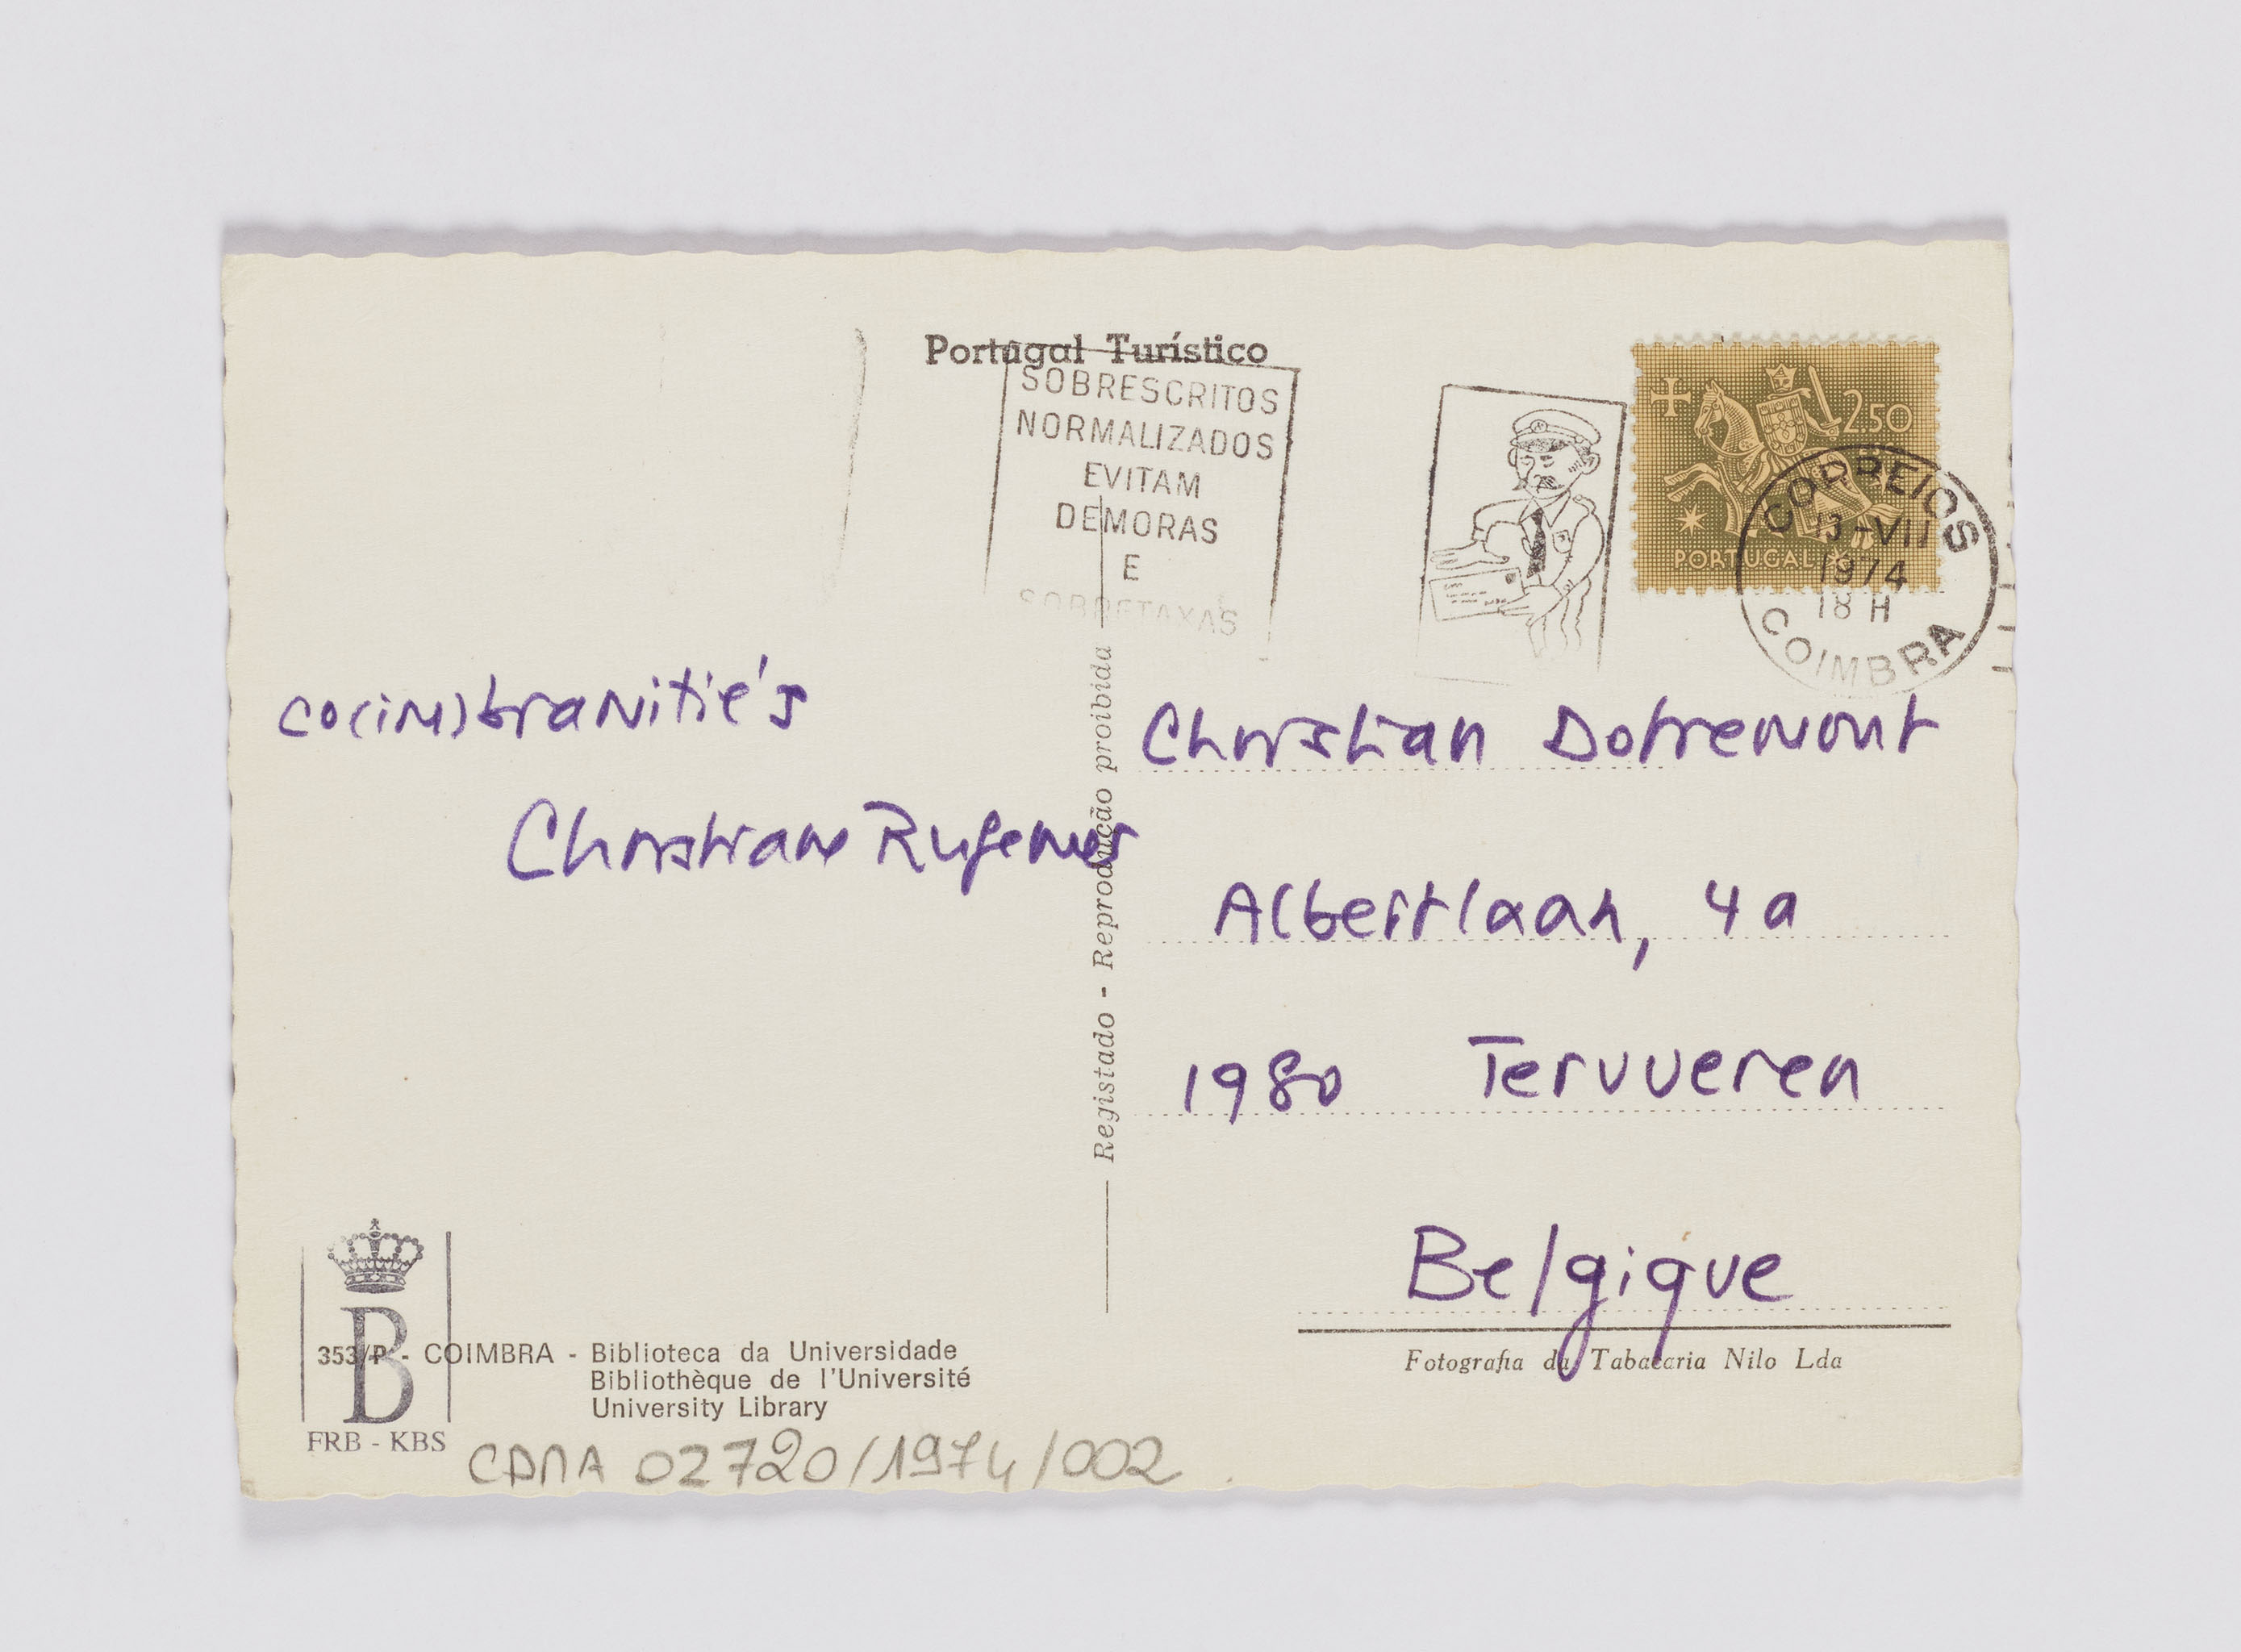 Portugal Turístico
SOBRESCRITOS
NORMALIZADOS
EVITAM
DEMORAS
E
SOBRETAXAS
2.50
PORTUGAL
CORREIOS
13-VII
1974
18 H
COIMBRA
co(im)branitié's
Christian Dotremont
Albertlaan, 4a
1980 Tervueren
Belgique
Registado - Reprodução proibida
B
FRB - KBS
353/P - COIMBRA - Biblioteca da Universidade
Bibliothèque de l'Université
University Library
Fotografia da Tabacaria Nilo Lda
CDMA 02720/1974/002